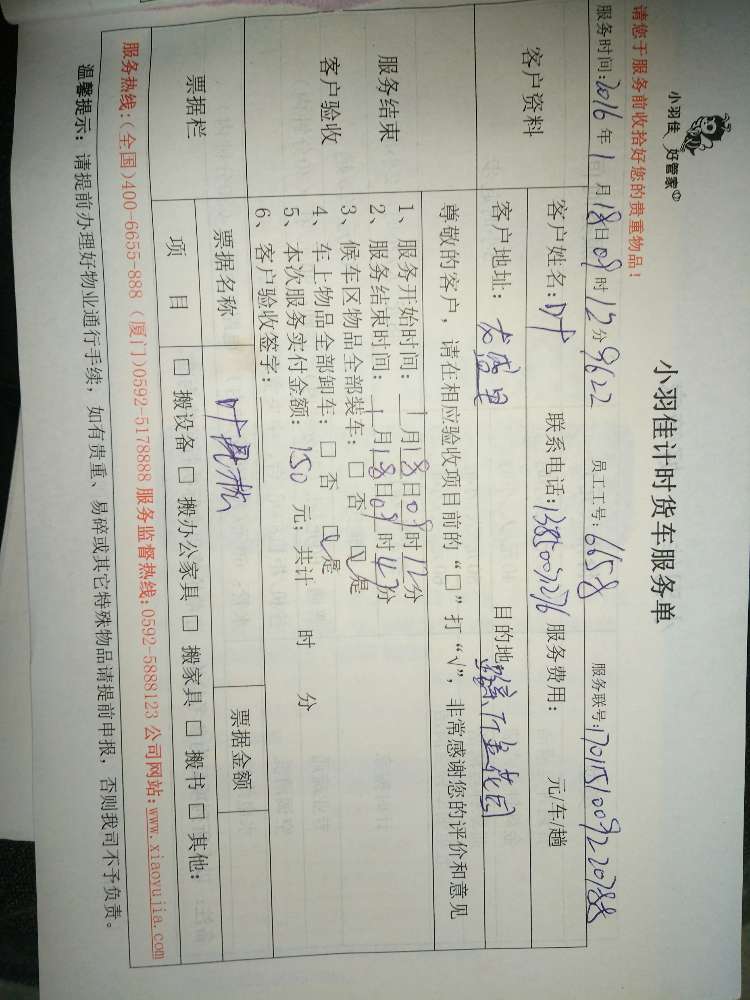 小羽佳 好管家
小羽佳计时货车服务单
请您于服务前收拾好您的贵重物品！
服务时间:2016年1月18日09时12分 9622 员工工号:6658 服务联号:
客户资料
客户姓名:叶 联系电话:13850071276 服务费用: 元/车/趟
客户地址: 目的地
服务结束
客户验收
尊敬的客户，请在相应验收项目前的“□”打“√”，非常感谢您的评价和意见
1、服务开始时间: 1月18日09时12分
2、服务结束时间: 1月18日09时47分
3、候车区物品全部装车: □ 否 ☑ 是
4、车上物品全部卸车: □ 否 ☑ 是
5、本次服务实付金额: 150 元; 共计 时 分
6、客户验收签字:
票据栏
票据名称 票据金额
项 目 □ 搬设备 □ 搬办公家具 □ 搬家具 □ 搬书 □ 其他:
服务热线:(全国)400-6655-888 (厦门)0592-5178888 服务监督热线:0592-5888123 公司网站:www.xiaoyujia.com
温馨提示: 请提前办理好物业通行手续，如有贵重、易碎或其它特殊物品请提前申报，否则我司不予负责。